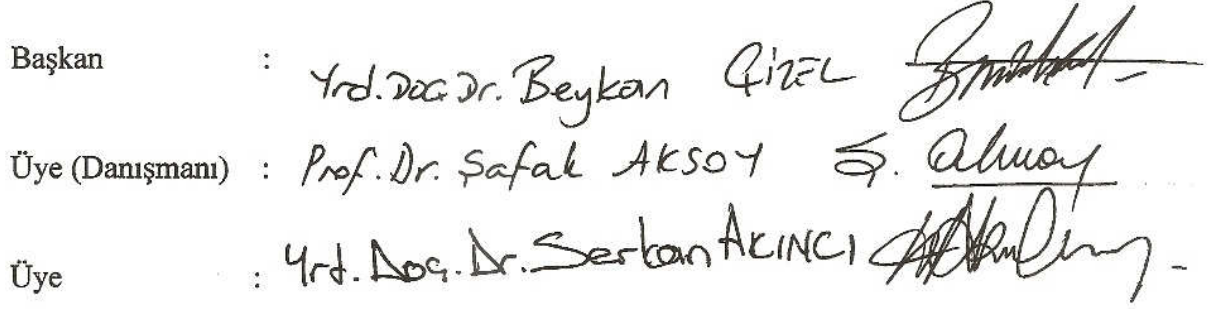 Başkan : Yrd. Doç. Dr. Beykan ÇİZEL
Üye (Danışmanı) : Prof. Dr. Şafak AKSOY Ş. Aksoy
Üye : Yrd. Doç. Dr. Serkan AKINCI